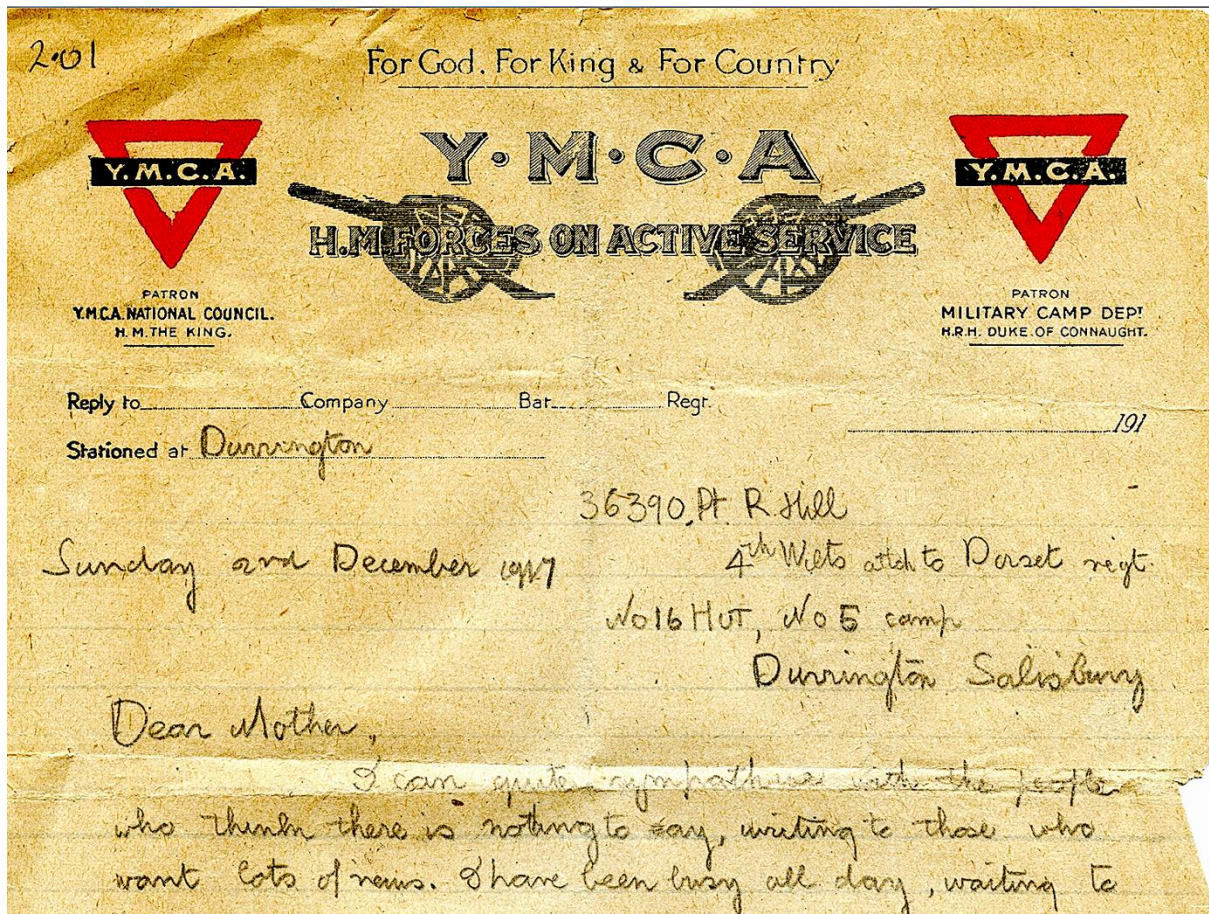 2.01
For God, For King & For Country
Y.M.C.A.
Y·M·C·A
Y.M.C.A.
H.M. FORCES ON ACTIVE SERVICE
PATRON
Y.M.C.A. NATIONAL COUNCIL.
H.M. THE KING.
PATRON
MILITARY CAMP DEPT
H.R.H. DUKE OF CONNAUGHT.
Reply to Company Bat. Regt.
191
Stationed at Durrington
36390, Pt. R Hill
Sunday 2nd December 1917
4th Wilts attch to Dorset regt.
No 16 HUT, No 5 camp
Durrington Salisbury
Dear Mother,
I can quite sympathise with the people
who think there is nothing to say, writing to those who
want lots of news. I have been busy all day, waiting to